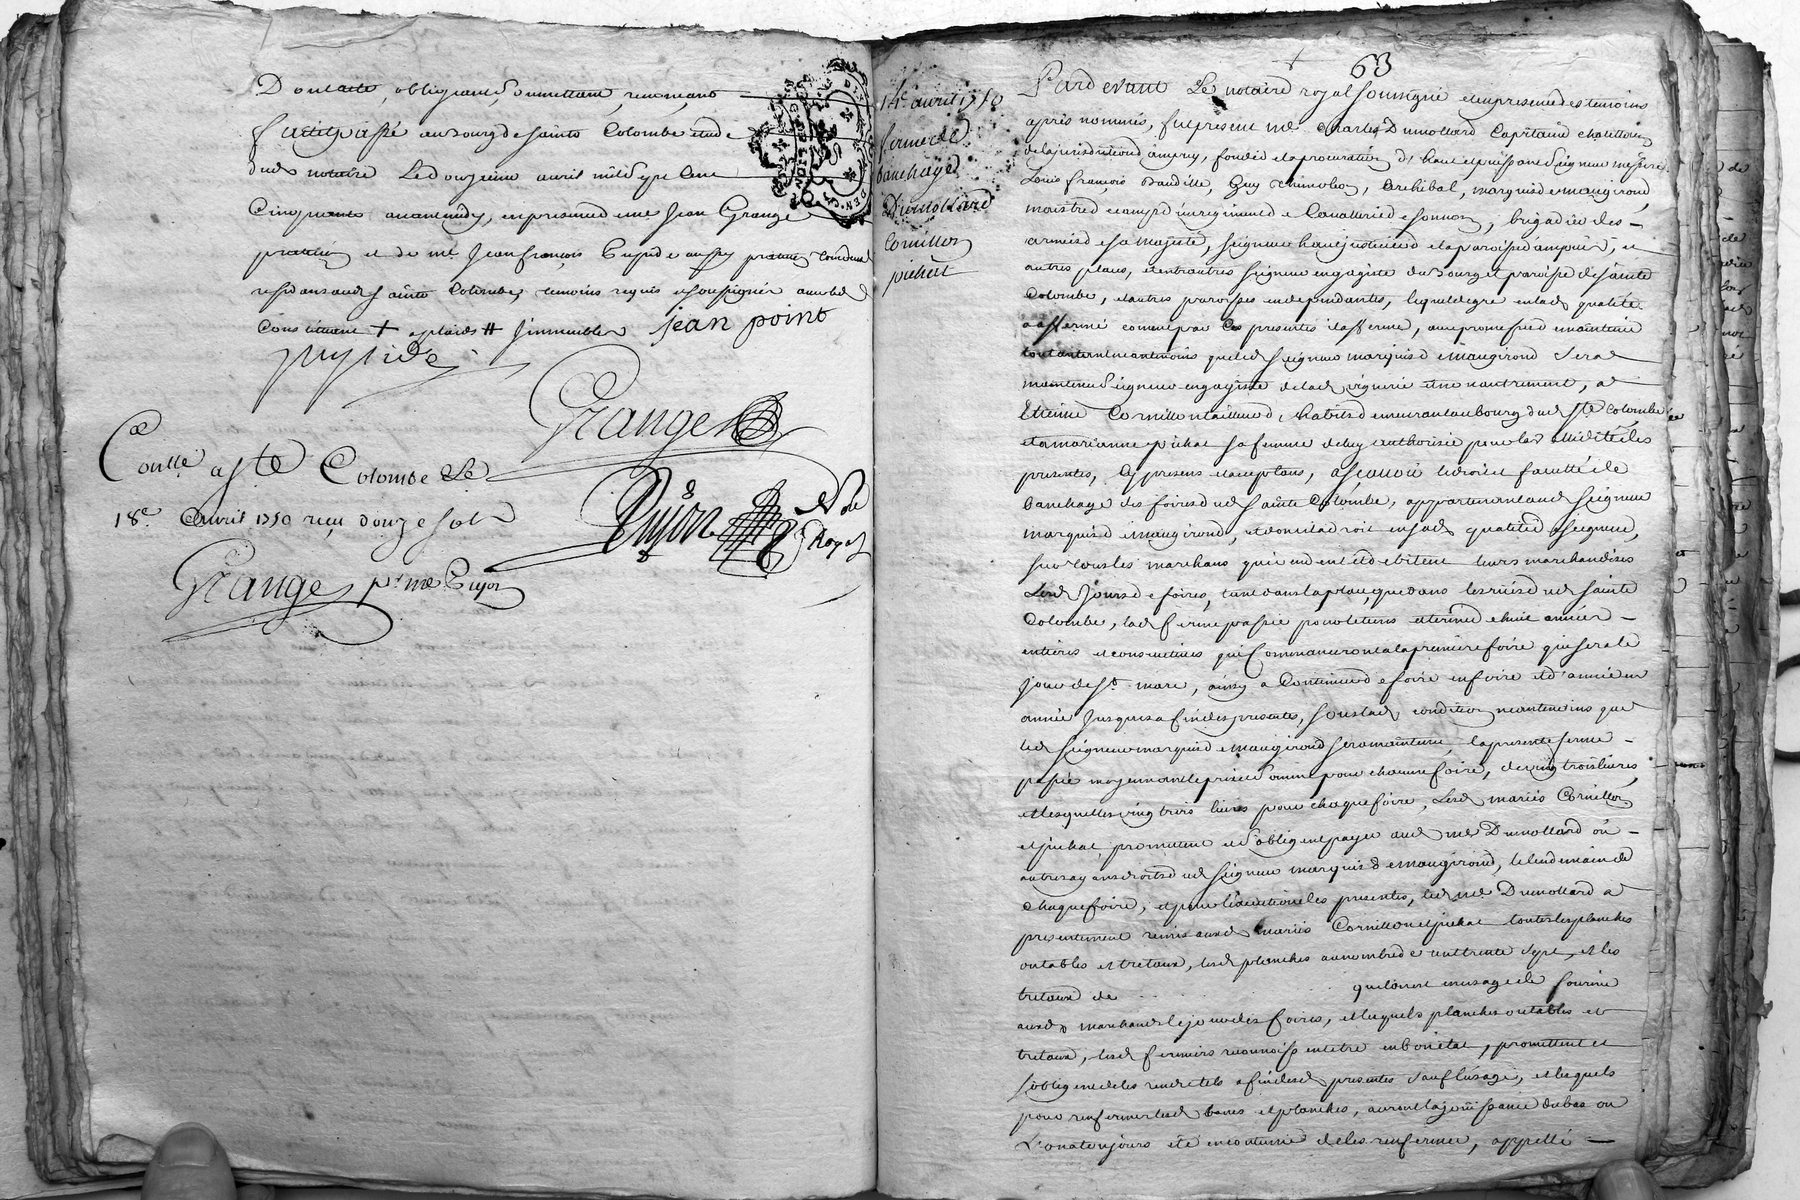 Dont acte, obligeant, soumettant, renonçant
fait et passé au bourg de sainte Colombe etude
dud notaire Le douzieme avril mil sept cent
Cinquante avant midy, en presence de me Jean Grange
praticien et de me Jean françois
residans aud sainte Colombe, temoins requis et soussignés avec led
Constituant + # immeubles jean point
Grange
Conllé a Ste Colombe Le
18e avril 1750 reçu douze sols
Pujon Nre Royal
Grange pr me Pujon
63
14e avril 1750
ferme de
banchage
Dumollard
Cornillon
pichat
Pardevant Le notaire royal soussigné et en presence des temoins
après nommés, fut present me Charles Dumollard Capitaine chatellain
de la jurisdiction d'ampuy, fondé de la procuration de haut et puissant Seigneur messire
Louis françois Guy Thimoleon, Archibal, marquis de maugirond,
mestre de camp d'un regiment de Cavallerie de son nom, brigadier des
armées de sa majesté, seigneur haut justicier de la paroisse d'ampuis, et
autres places, et entr'autres seigneur engagiste du bourg et paroisse de sainte
Colombe, et autres paroisses en dependantes, lequel de gré en lad qualité
a affermé comme par Ces presentes il afferme, avec promesse de maintenir
tout autant neantmoins que led seigneur marquis de maugirond sera
maintenu Seigneur engagiste de lad vignerie et non autrement, a
Etienne Cornillon tailleur d'habits demeurant au bourg dud Ste Colombe
et a marianne pichat sa femme de luy authorisée pour la validité des
presentes, Cy presens et acceptans, a scavoir le droit et faculté de
banchage des foires dud sainte Colombe, appartenant aud Seigneur
marquis de maugirond, et dont il a droit en sad qualité de seigneur,
sur tous les marchans qui vendent et debitent leurs marchandises
Lesd Jours de foires, tant dans la place, que dans les rues dud sainte
Colombe, lad ferme passée pour le tems et terme de huit années
entieres et consecutives qui Commanceront a la premiere foire qui sera le
jour de St marc, ainsy a Continuer de foire en foire et d'année en
année Jusques a fin des presentes, sous lad condition neantmoins que
led seigneur marquis de maugirond sera maintenu, la presente ferme
passée moyennant le prix et Somme pour chacune foire, de vingt trois livres,
et lesquelles vingt trois livres pour chaque foire, Lesd mariés Cornillon
et pichat, promettent et s'obligent payer aud me Dumollard ou
autres ayans droits dud seigneur marquis de maugirond, le lendemain de
chaque foire, et pour l'execution des presentes, led me Dumollard a
presentement remis auxd mariés Cornillon et pichat toutes les planches
ou tables et tretaux, lesd planches au nombre de cent trente sept, et les
tretaux de qu'elle est en usage de fournir
auxd marchands le jour des foires, et lesquels planches ou tables et
tretaux, lesd fermiers reconnoissent etre en bon etat, promettent et
s'obligent de les rendre tels a fin desd presentes sauf l'usage, et lesquels
pour renfermer lesd bancs et planches, auront la jouissance du bas ou
L'on a toujours été en coutume de les renfermer, appellé